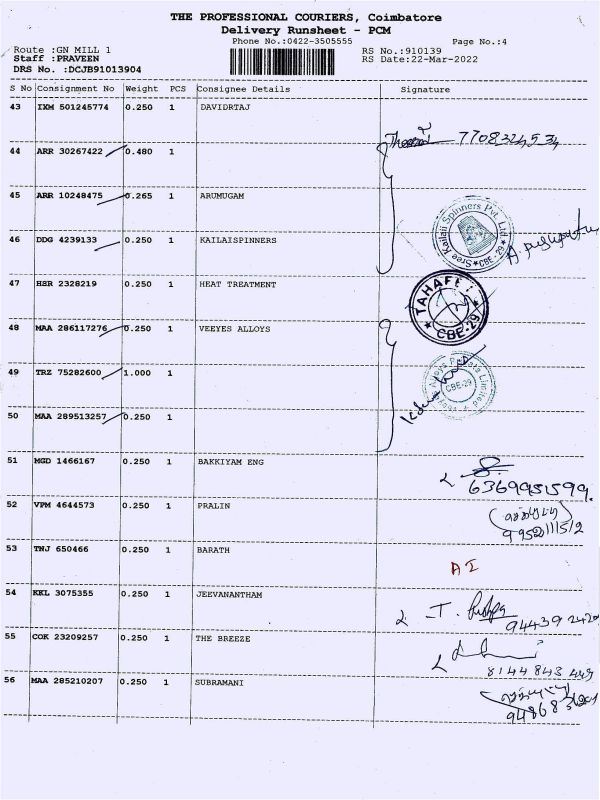 THE PROFESSIONAL COURIERS, Coimbatore
Delivery Runsheet - PCM
Phone No.:0422-3505555 Page No.:4
Route :GN MILL 1 RS No.:910139
Staff :PRAVEEN RS Date:22-Mar-2022
DRS No. :DCJB91013904
S No Consignment No Weight PCS Consignee Details Signature
43 IXM 501245774 0.250 1 DAVIDRTAJ
7708324534
44 ARR 30267422 0.480 1
45 ARR 10248475 0.265 1 ARUMUGAM
Sree Kailaii Spinners Pvt. Ltd. CBE-29
46 DDG 4239133 0.250 1 KAILAISPINNERS
47 HSR 2328219 0.250 1 HEAT TREATMENT
CBE-29
48 MAA 286117276 0.250 1 VEEYES ALLOYS
49 TRZ 75282600 1.000 1
CBE-29
50 MAA 289513257 0.250 1
51 MGD 1466167 0.250 1 BAKKIYAM ENG
6369951599.
52 VPM 4644573 0.250 1 PRALIN
53 TNJ 650466 0.250 1 BARATH
54 KKL 3075355 0.250 1 JEEVANANTHAM
55 COK 23209257 0.250 1 THE BREEZE
8144843449
56 MAA 285210207 0.250 1 SUBRAMANI